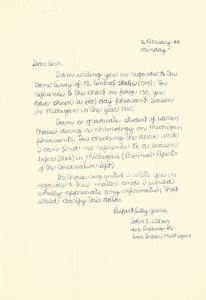 16 February '48
Monday
Dear Sirs:
I am writing you in regards to the
Game Survey of 12 Central States (1931). In
reference to the chart on page 130. You
have shown a (60) day pheasant season
in Michigan in the year 1910.
I am a graduate student of
doing a chronology on Michigan
pheasants. On checking the above work
I can find no reference to a season
before (1925) in Michigan (Biennial Reports
of the Conservation Dept)
Dr. suggested I write you in
regards to this matter and I would
wholly appreciate any information that
would clarify this data.
Respectfully yours,
John E.
Ann Arbor, Michigan